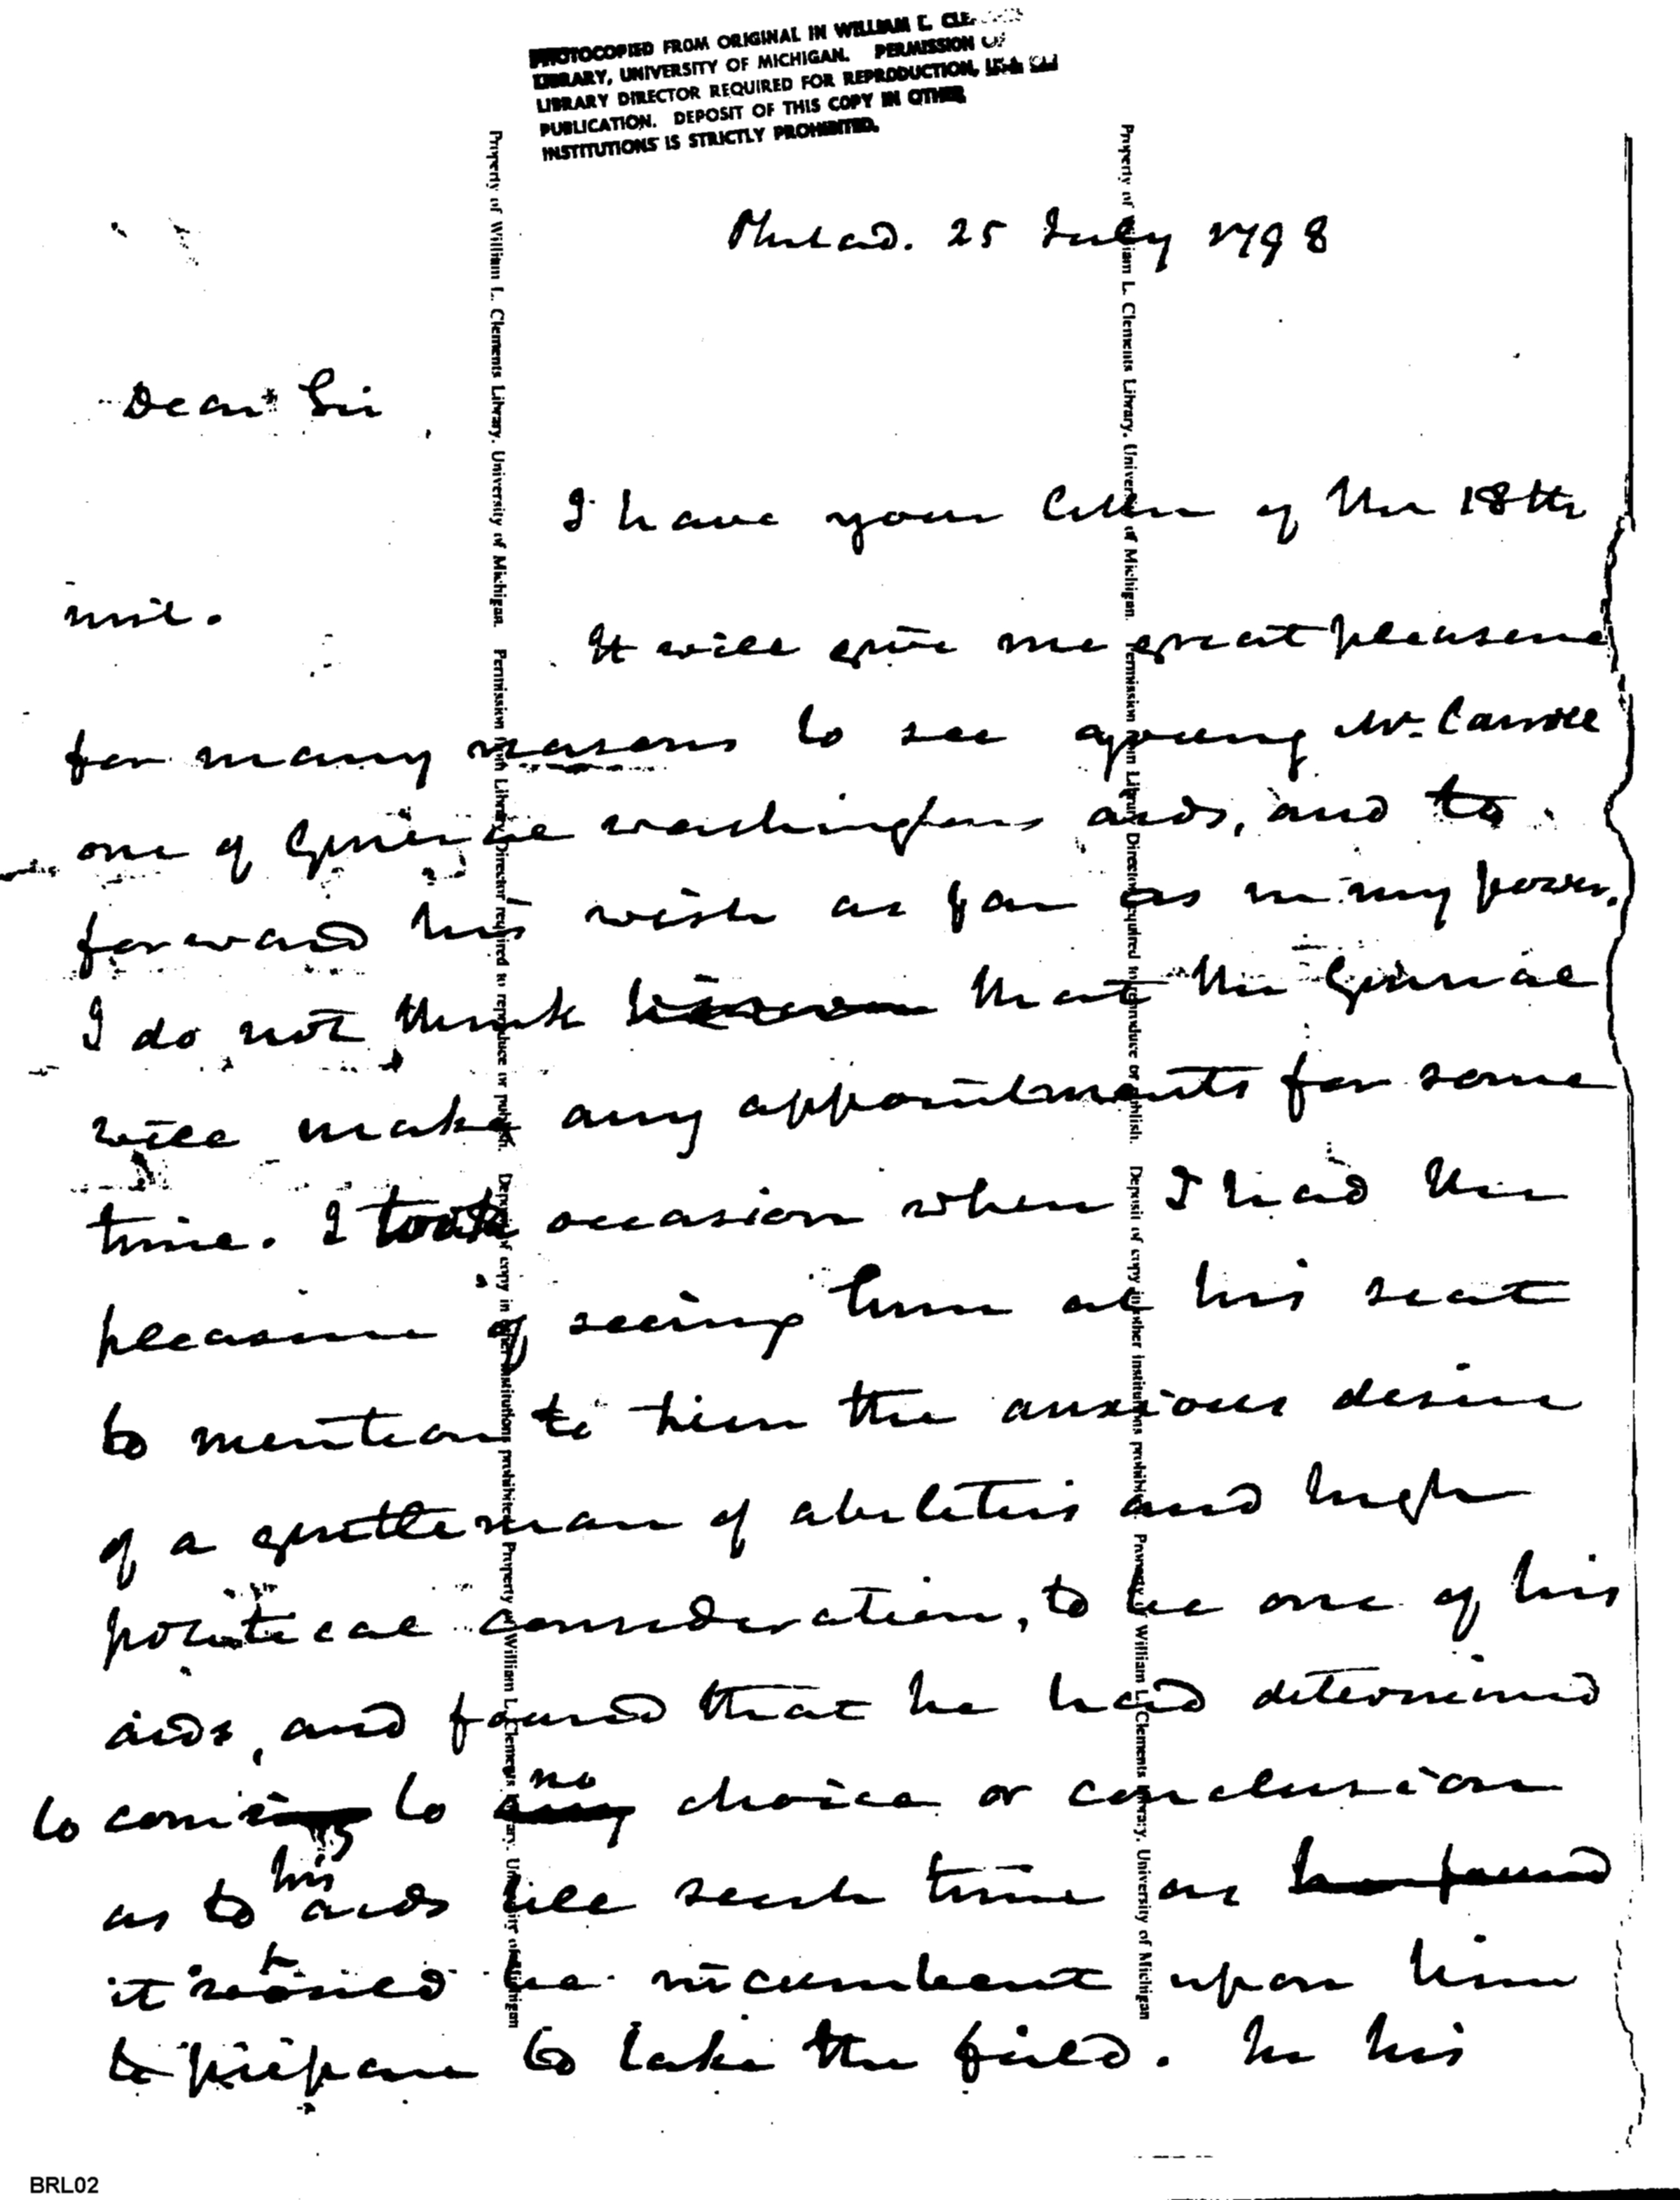 PHOTOCOPIED FROM ORIGINAL IN WILLIAM L. CLE
LIBRARY, UNIVERSITY OF MICHIGAN. PERMISSION OF
LIBRARY DIRECTOR REQUIRED FOR REPRODUCTION,
PUBLICATION. DEPOSIT OF THIS COPY IN OTHER
INSTITUTIONS IS STRICTLY PROHIBITED.
Philad. 25 July 1798
Dear Sir
I have your letter of the 18th
inst.
It will give me great pleasure
for many reasons to see young Mr. Carroll
one of General Washingtons aids, and to
forward his wish as far as in my power.
I do not think that the General
will make any appointments for some
time. I took occasion when I had the
pleasure of seeing him at his seat
to mention to him the anxious desire
of a gentleman of abilities and high
political consideration, to be one of his
aids, and found that he had determined
to come to no choice or conclusion
as to his aids till such time as he found
it should be incumbent upon him
to prepare to take the field. In his
Property of William L. Clements Library, University of Michigan. Permission from Library Director required to reproduce or publish. Deposit of copy in other institutions prohibited. Property of William L. Clements Library, University of Michigan
Property of William L. Clements Library, University of Michigan. Permission from Library Director required to reproduce or publish. Deposit of copy in other institutions prohibited. Property of William L. Clements Library, University of Michigan
BRL02